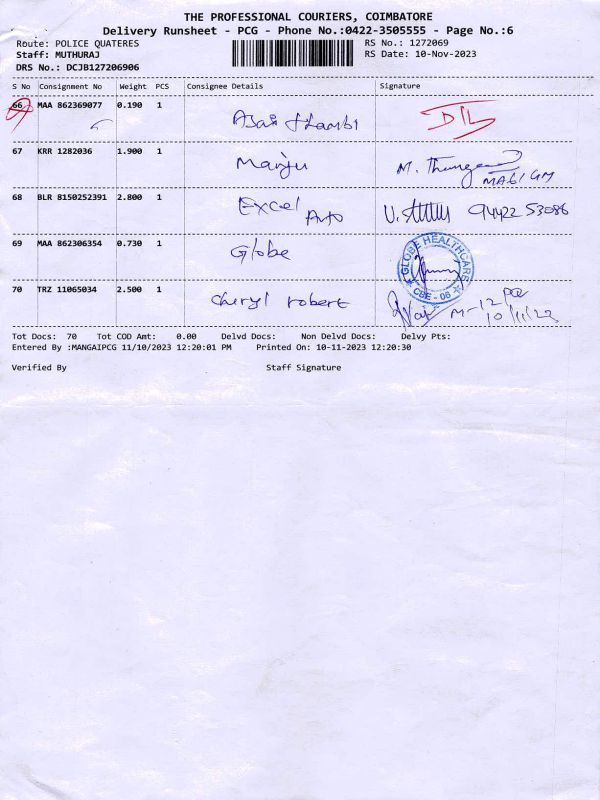 THE PROFESSIONAL COURIERS, COIMBATORE
Delivery Runsheet - PCG - Phone No.:0422-3505555 - Page No.:6
Route: POLICE QUATERES RS No.: 1272069
Staff: MUTHURAJ RS Date: 10-Nov-2023
DRS No.: DCJB127206906
S No Consignment No Weight PCS Consignee Details Signature
66 MAA 862369077 0.190 1
67 KRR 1282036 1.900 1 Manju M.
68 BLR 8150252391 2.800 1 Excel Auto 94422 53086
69 MAA 862306354 0.730 1 Globe GLOBE HEALTHCARE CBE - 08
70 TRZ 11065034 2.500 1 Cheryl robert M-12
Tot Docs: 70 Tot COD Amt: 0.00 Delvd Docs: Non Delvd Docs: Delvy Pts:
Entered By :MANGAIPCG 11/10/2023 12:20:01 PM Printed On: 10-11-2023 12:20:30
Verified By Staff Signature